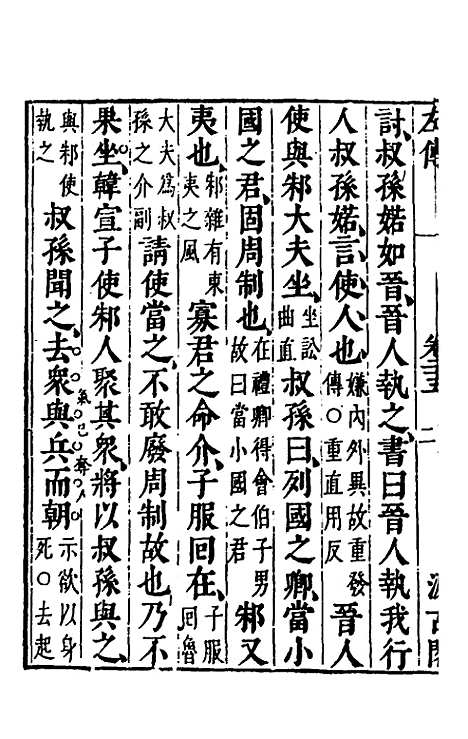 左傳 卷二五 二
討、叔孫婼如晉、晉人執之、書曰晉人執我行
人叔孫婼、言、使人也嫌內外異故重發傳○重直用反晉人
使與邾大夫坐、坐訟曲直叔孫曰、列國之卿、當小
國之君、固周制也、在禮卿得會伯子男故曰當小國之君邾又
夷也、邾雜有東夷之風寡君之命介、子服回在、子服回魯
大夫爲叔孫之介副請使當之、不敢廢周制故也、乃不
果坐、韓宣子使邾人聚其衆、將以叔孫與之、
與邾使執之叔孫聞之、去衆與兵而朝示欲以身死○去起
氣○已○奪○人○